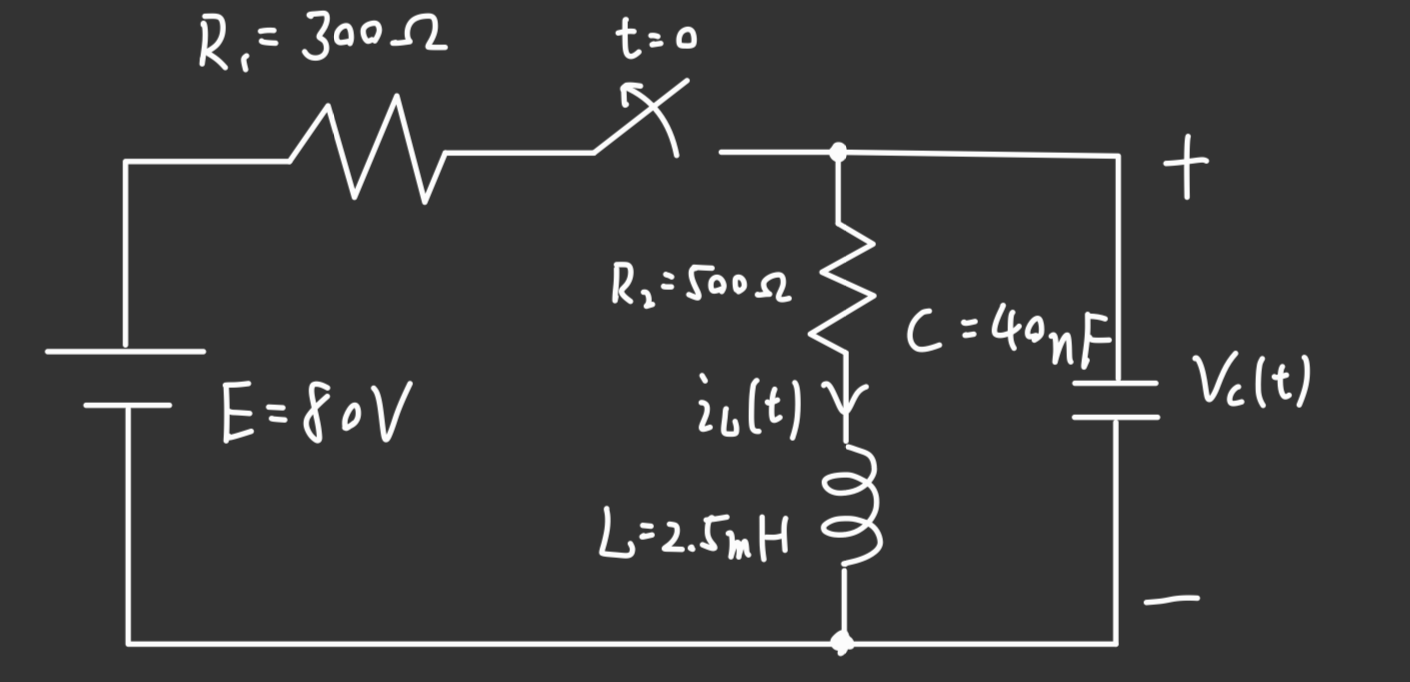 R₁=300Ω
t=0
+
R₂=500Ω
C=40nF
E=80V
i_L(t)
V_c(t)
L=2.5mH
−